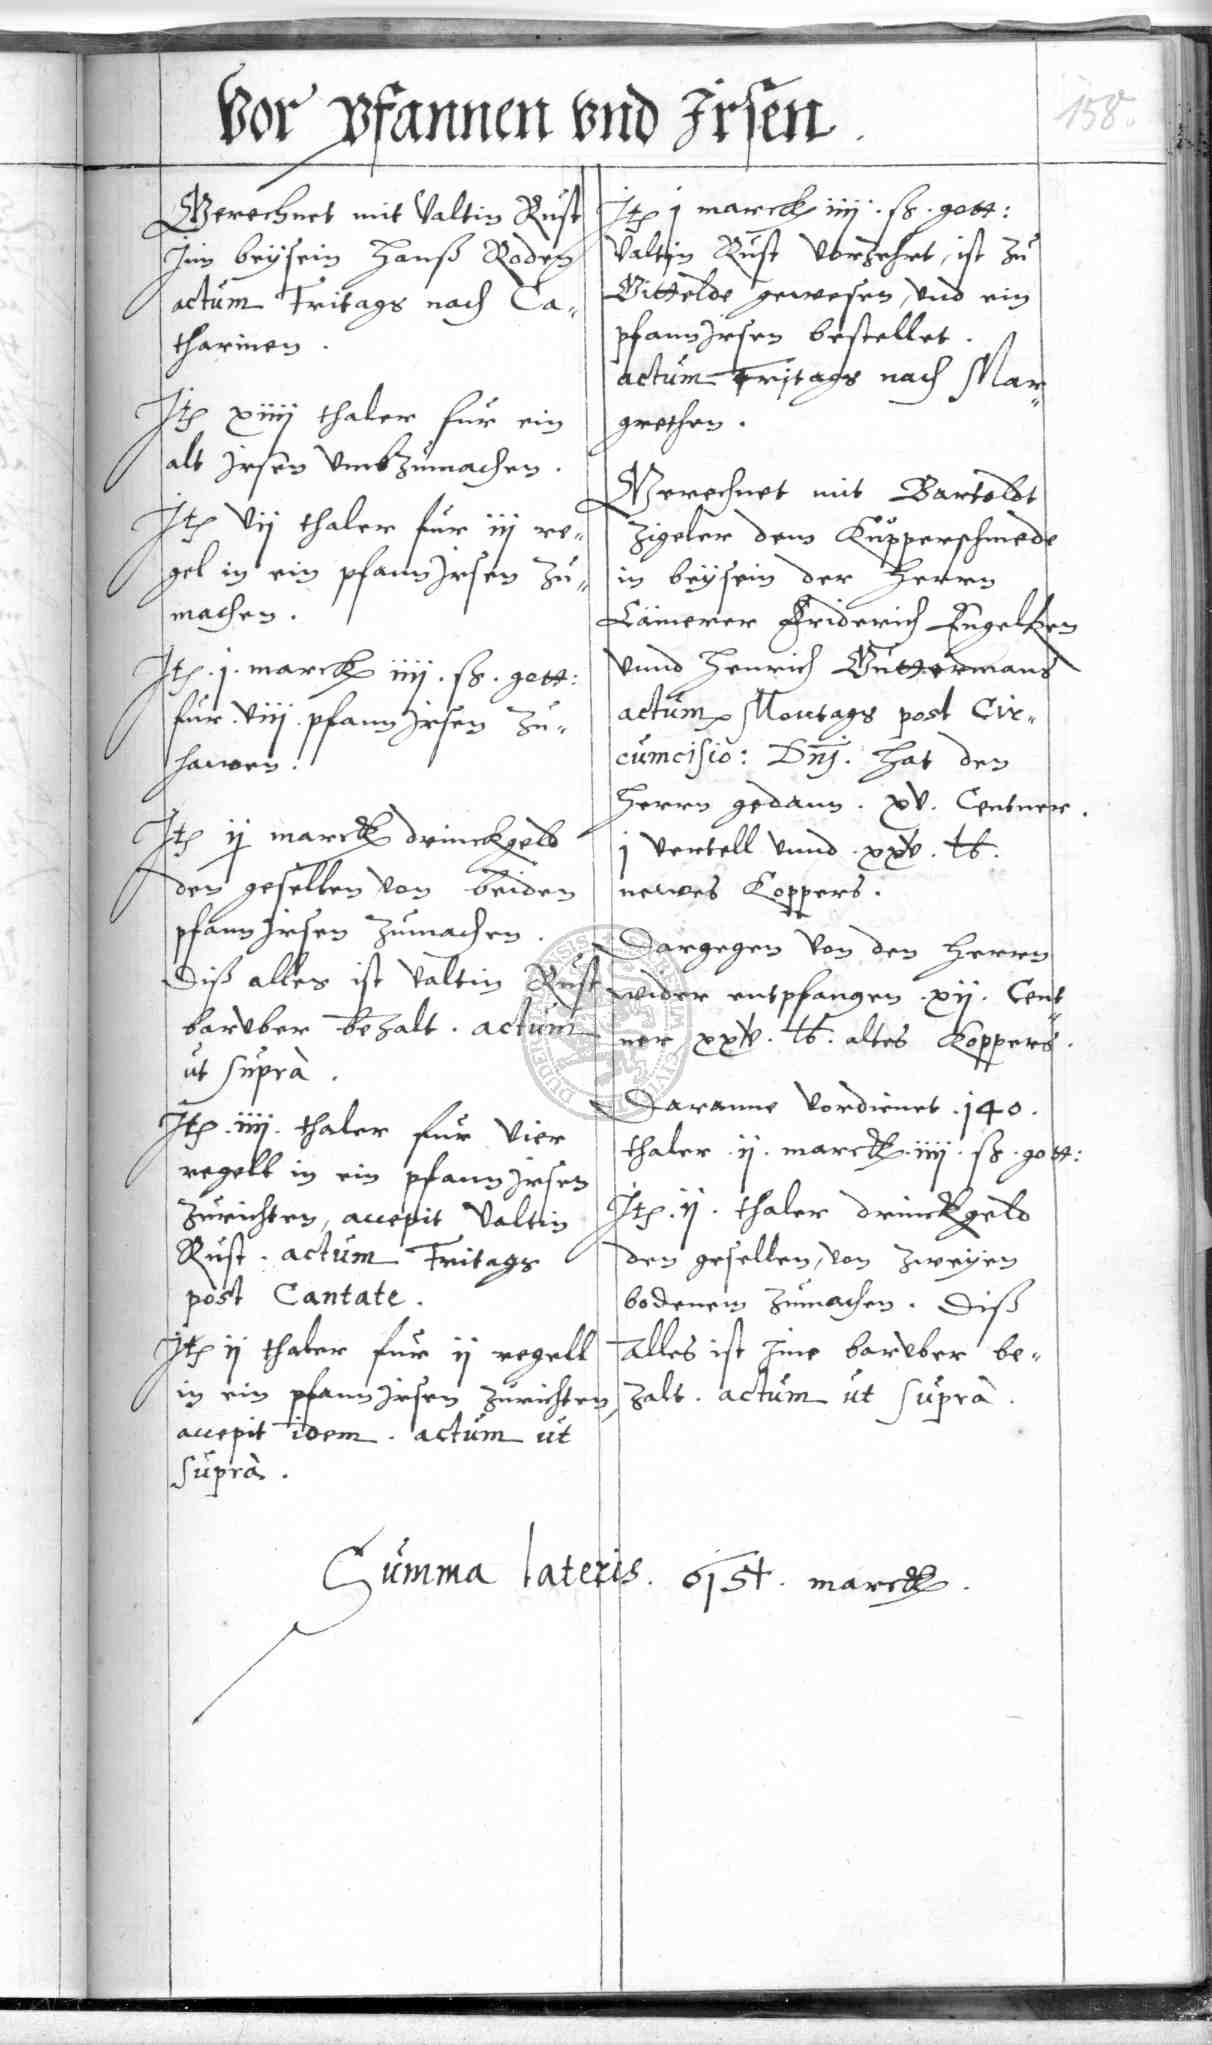 Vor Pfannen vnd Jrsen.
158.
Gerechnet mit Valtin Rust
Jnn beÿsein Hanß Roden
actum Fritags nach Ca„
tharinen.
Jtem xiiij thaler fur ein
alt Jrsen vmbzumachen.
Jtem vij thaler fur iij re„
gel in ein pfann Jrsen zu„
machen.
Jtem .j. marck iiij. ß. gott:
fur .viij. pfann Jrsen zu„
hawen.
Jtem ij marck drinckgeld
den gesellen von beiden
pfann Jrsen zumachen.
Diß alles ist Valtin Rust
barvber bezalt. actum
ut supra.
Jtem .iiij. thaler fur vier
regell in ein pfann Jrsen
zurichten, accepit Valtin
Rust. actum Fritags
post Cantate.
Jtem ij thaler fur ij regell
in ein pfann Jrsen zurichten,
accepit idem. actum ut
supra.
Jtem j marck iiij. ß. gott:
Valtin Rust vorzehrt, ist zu
Gittelde gewesen, vnd ein
pfann Jrsen bestellet.
actum Fritags nach Mar„
grethen.
Gerechnet mit Bartoldt
Zigeler dem Kupperschmede
in beÿsein der Herrn
Cämerer Friderich Engelken
vnnd Henrich Guttermans
actum Montags post Cir„
cumcisio: Dnj. hat den
Herrn gedann. xv. Centner.
j vertell vnnd .xxv. lb.
newes Koppers.
Dargegen von den Herrn
wider entpfangen .xij. Cent„
ner xxv. lb. altes Koppers.
Daranne vordienet .140.
thaler .ij. marck .iiij. ß. gott:
Jtem .ij. thaler drinckgeld
den gesellen, von zweÿen
bodenem zumachen. Diß
alles ist Jme barvber be„
zalt. actum ut supra.
Summa lateris. 615½. marck.